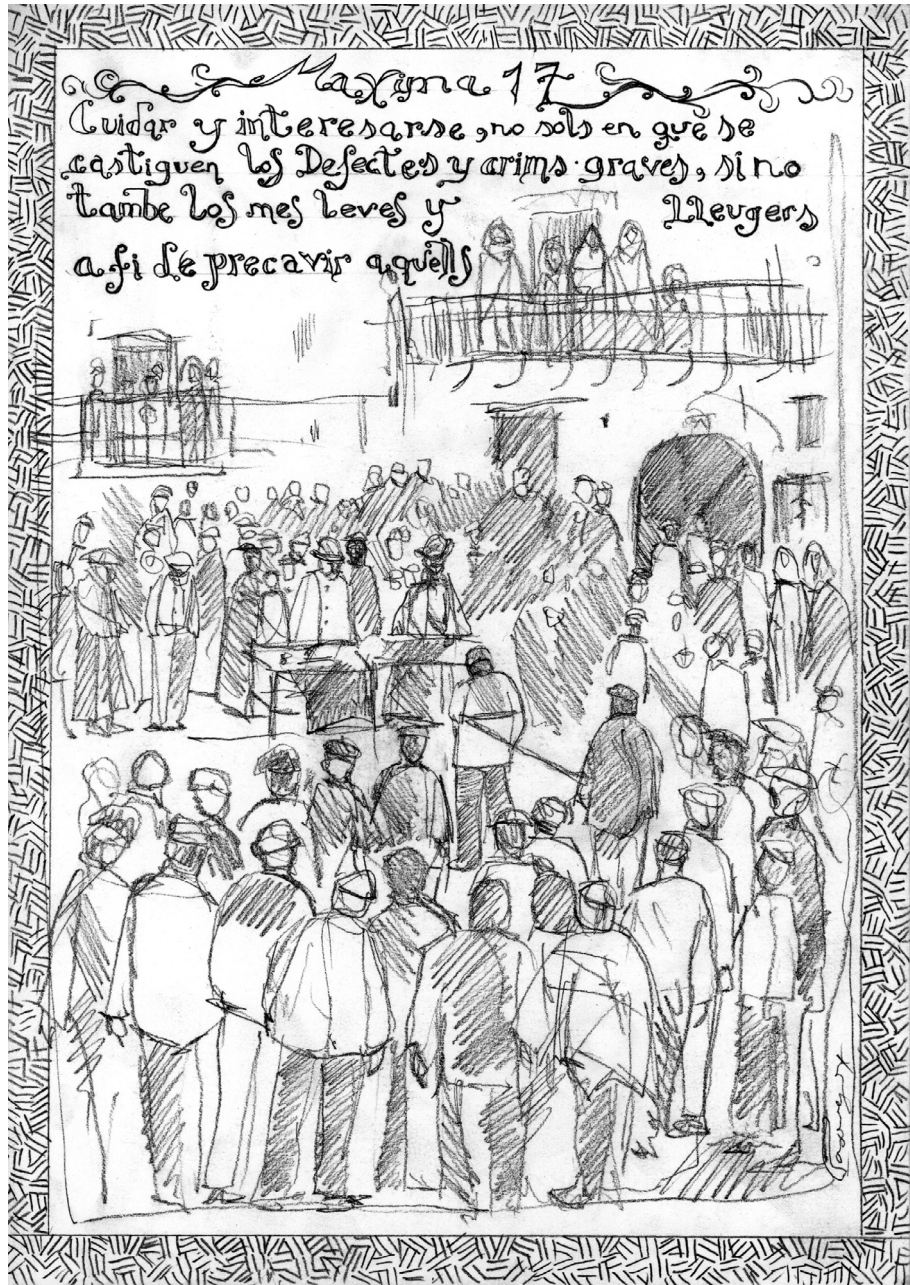 Maxima 17
Cuidar y interesarse, no sols en què se
castiguen los Defectes y crims graves, sino
tambe los mes leves y LLeugers
a fi de precavir aquells